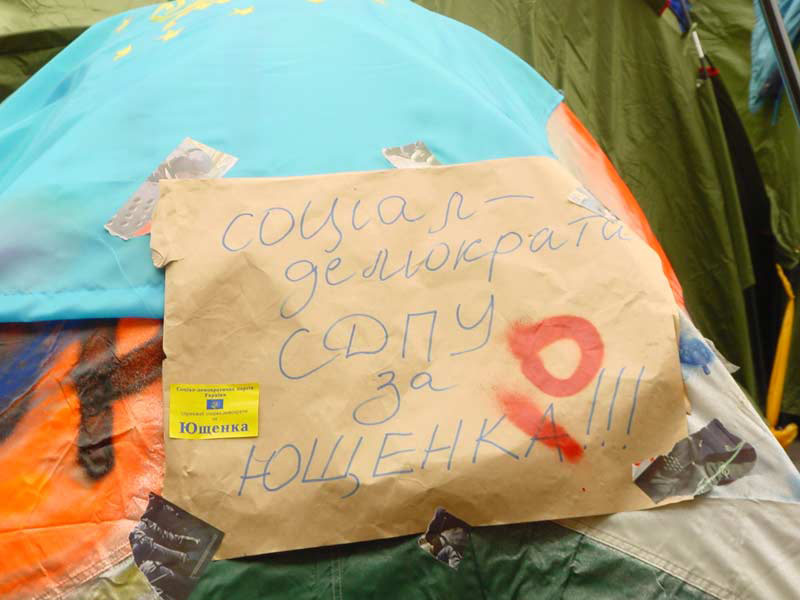 соціал-
демократи
СДПУ
за
ЮЩЕНКА!!!
Соціал-демократична партія
України
за
Ющенка